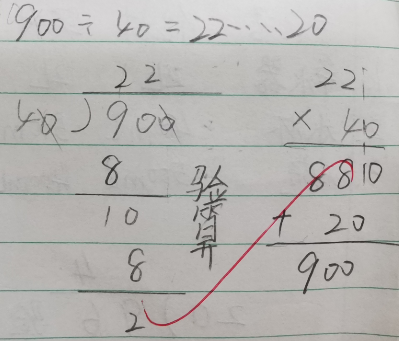 900÷40=22……20
22
40)900
8
10
8
2
验算
22
× 40
880
+ 20
900